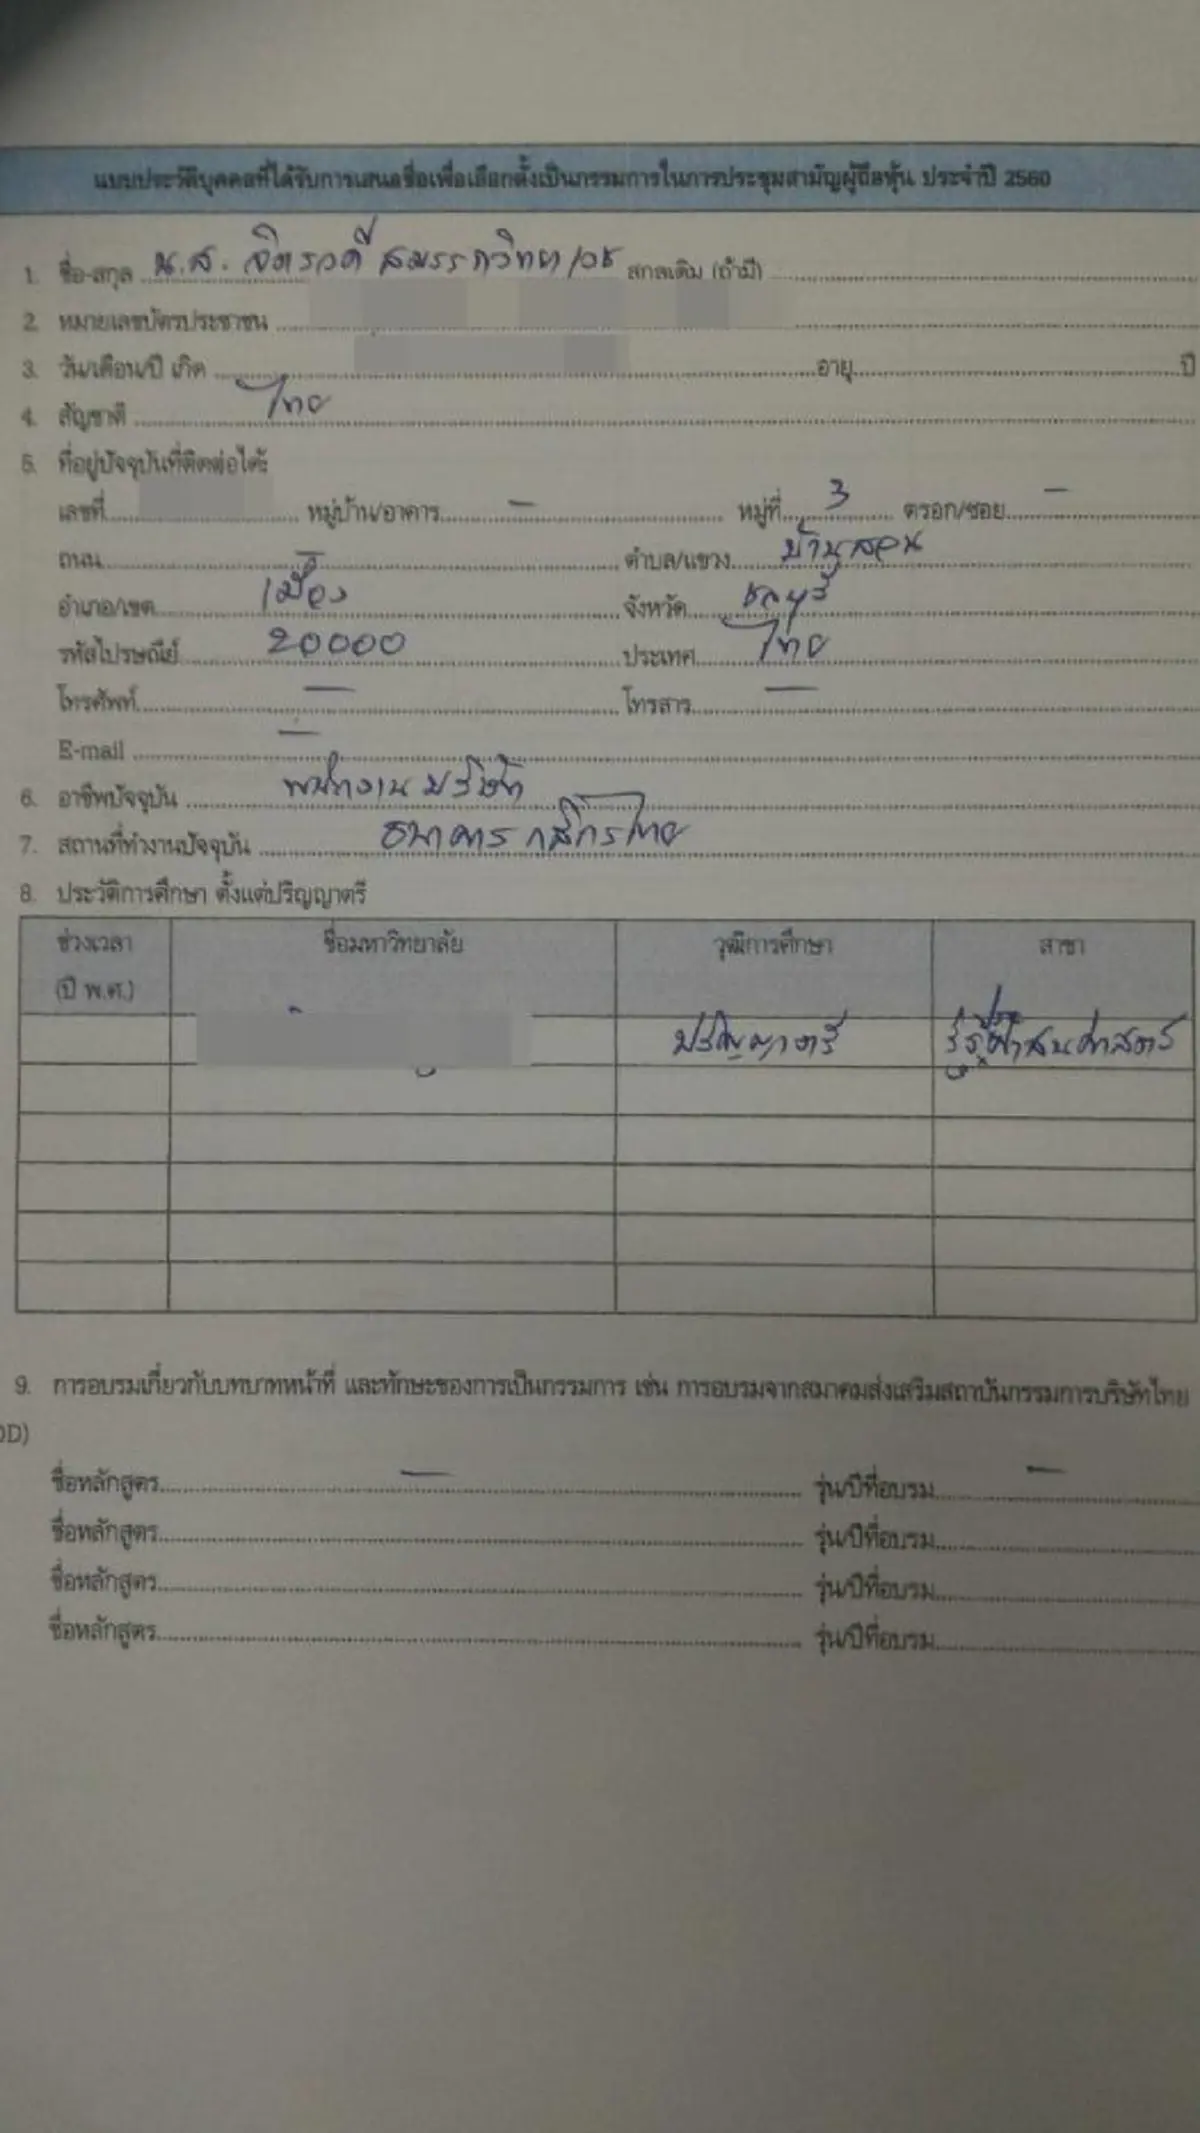 แบบประวัติบุคคลที่ได้รับการเสนอชื่อเพื่อเลือกตั้งเป็นกรรมการในการประชุมสามัญผู้ถือหุ้น ประจำปี 2560
1. ชื่อ-สกุล น.ส. จิตรวดี สกุลเดิม (ถ้ามี)
2. หมายเลขบัตรประชาชน
3. วัน/เดือน/ปี เกิด อายุ ปี
4. สัญชาติ ไทย
5. ที่อยู่ปัจจุบันที่ติดต่อได้:
เลขที่ หมู่บ้าน/อาคาร - หมู่ที่ 3 ตรอก/ซอย -
ถนน - ตำบล/แขวง บ้านสวน
อำเภอ/เขต เมือง จังหวัด ชลบุรี
รหัสไปรษณีย์ 20000 ประเทศ ไทย
โทรศัพท์ - โทรสาร -
E-mail -
6. อาชีพปัจจุบัน พนักงานบริษัท
7. สถานที่ทำงานปัจจุบัน ธนาคารกสิกรไทย
8. ประวัติการศึกษา ตั้งแต่ปริญญาตรี
ช่วงเวลา ชื่อมหาวิทยาลัย วุฒิการศึกษา สาขา
(ปี พ.ศ.)
ปริญญาตรี
9. การอบรมเกี่ยวกับบทบาทหน้าที่ และทักษะของการเป็นกรรมการ เช่น การอบรมจากสมาคมส่งเสริมสถาบันกรรมการบริษัทไทย
OD)
ชื่อหลักสูตร - รุ่น/ปีที่อบรม -
ชื่อหลักสูตร รุ่น/ปีที่อบรม
ชื่อหลักสูตร รุ่น/ปีที่อบรม
ชื่อหลักสูตร รุ่น/ปีที่อบรม